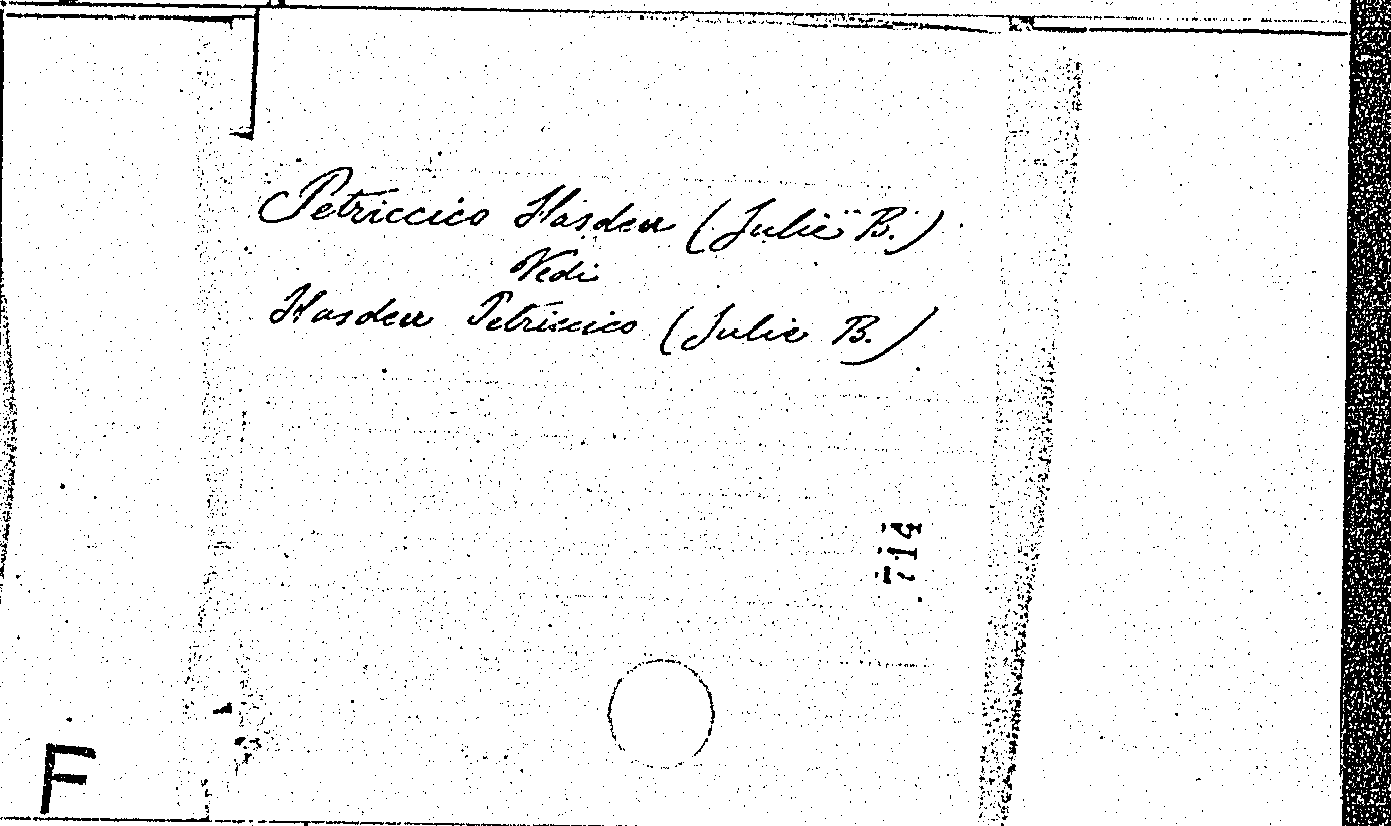 Petriccico Hasdeu (Julie B.)
Vedi
Hasdeu Petriccico (Julie B.)
714
F